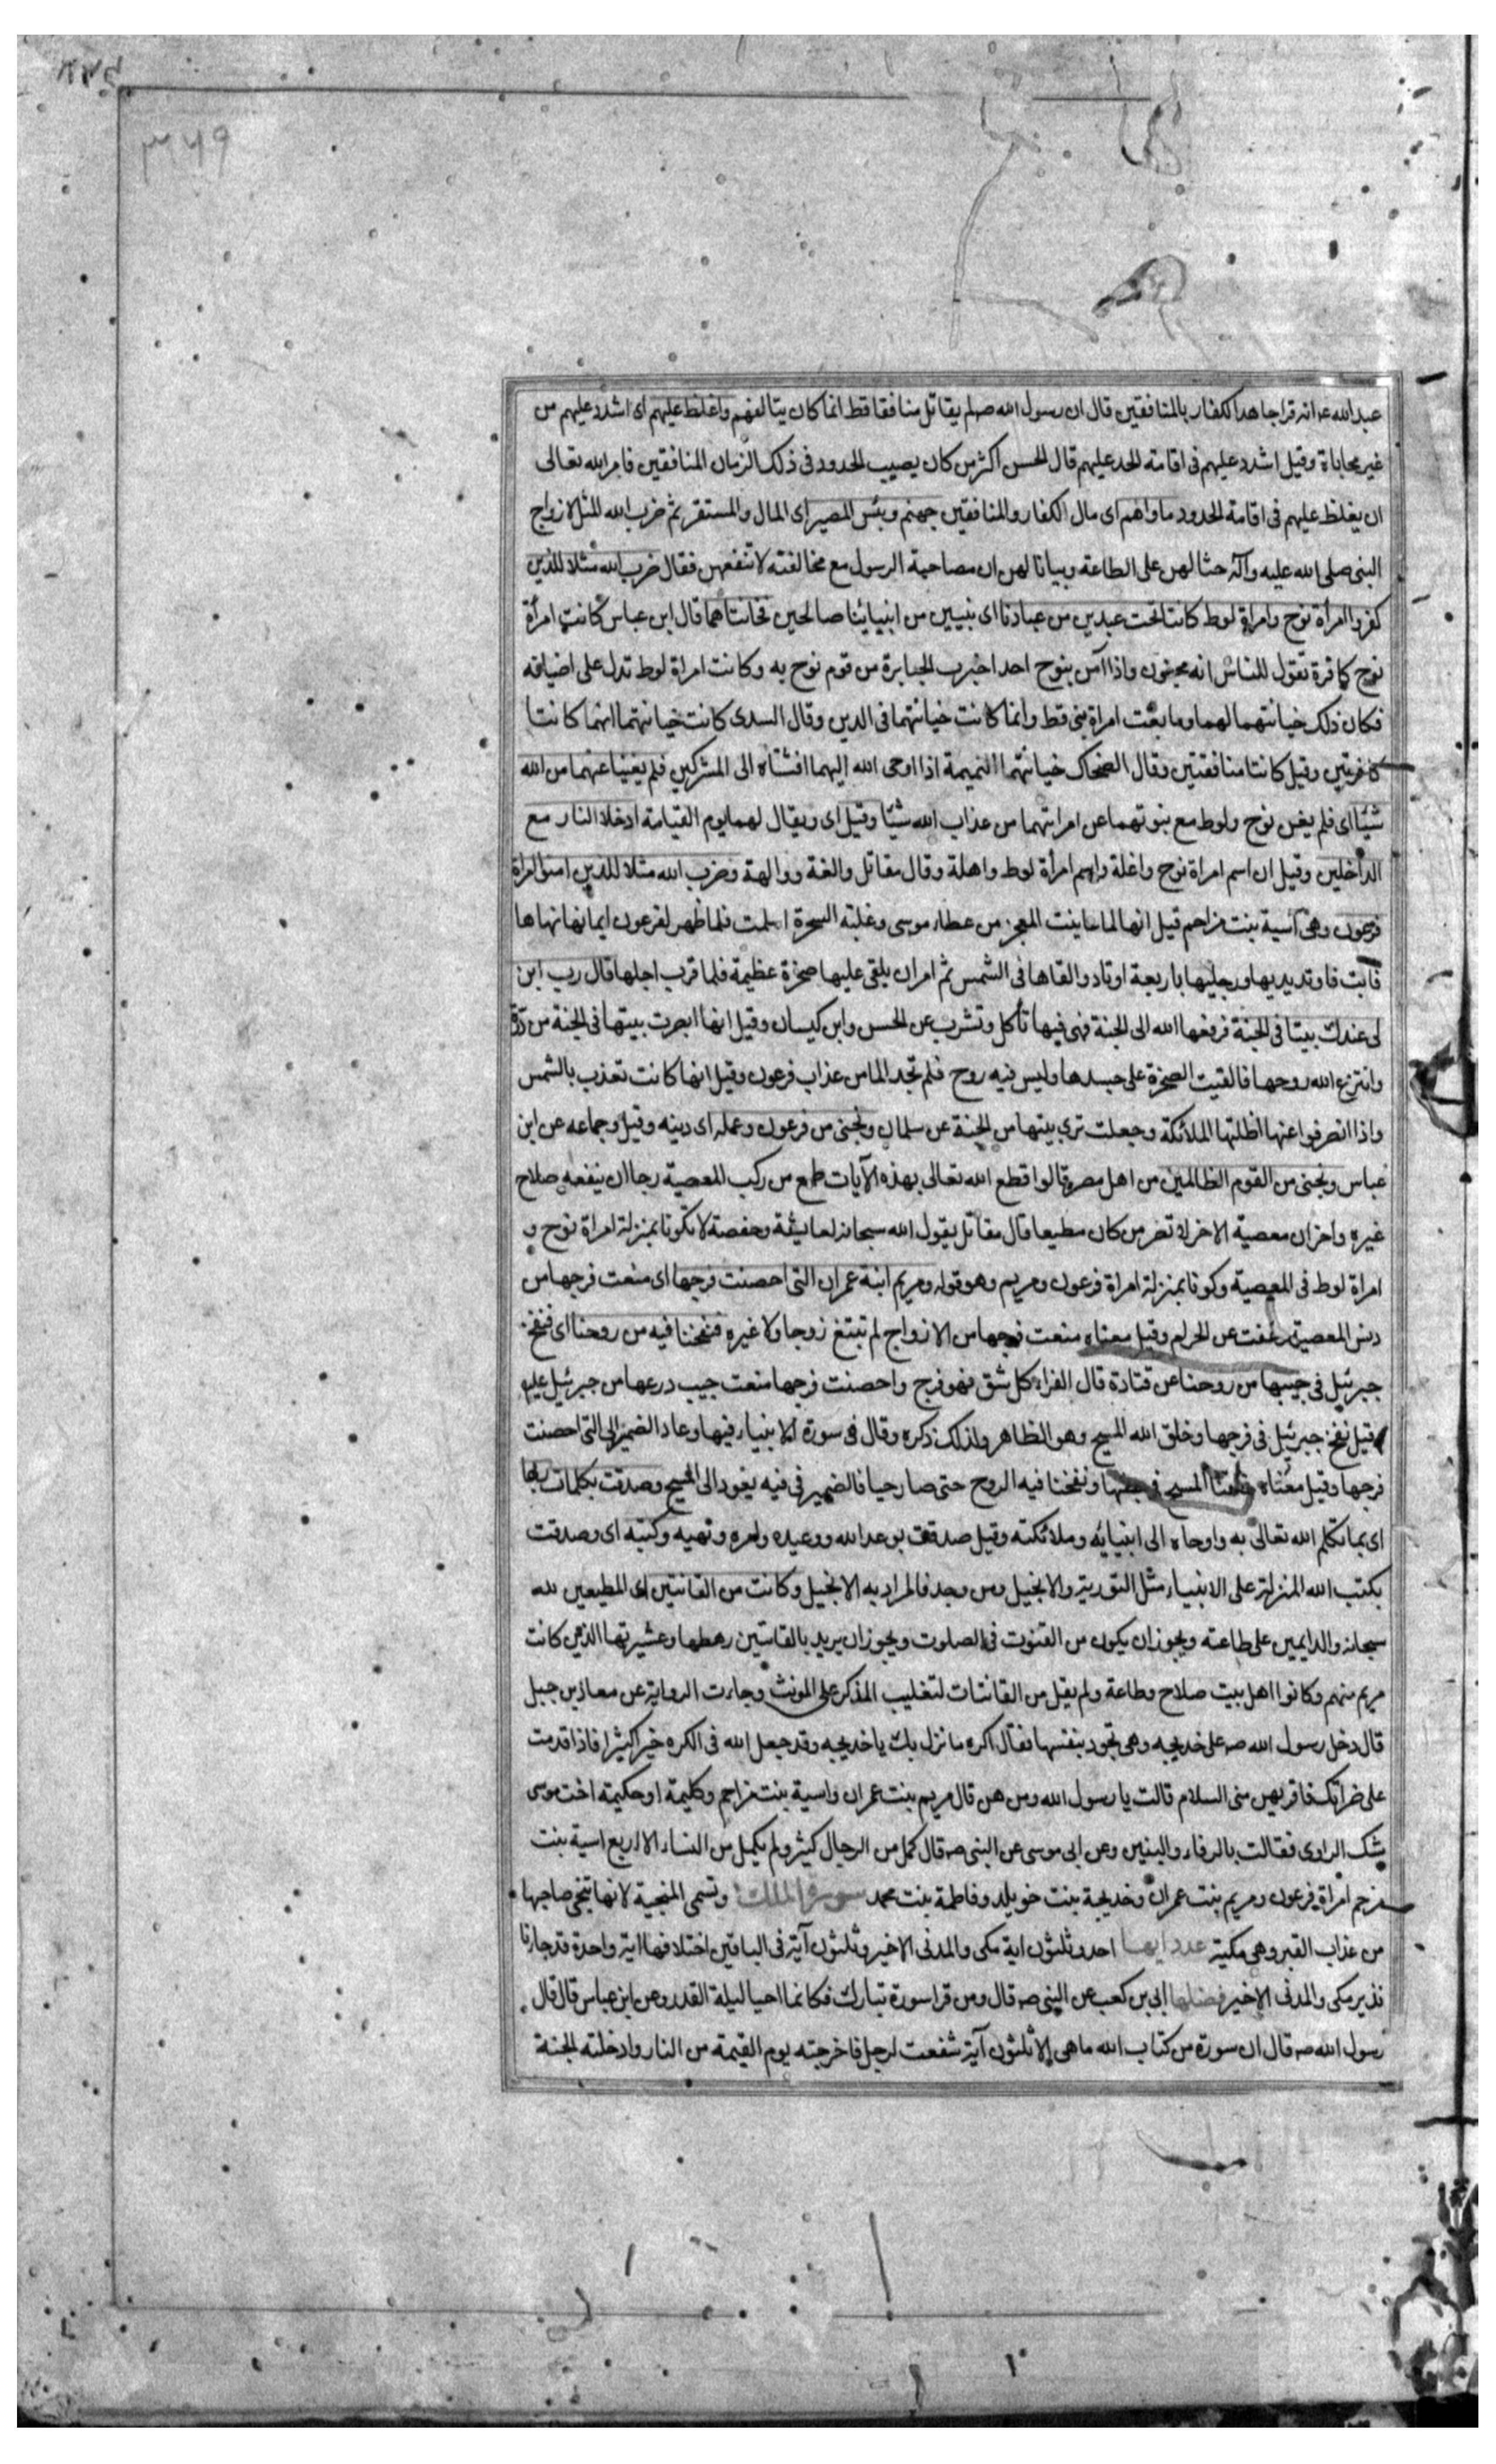 ۳۶۹
عبدالله ع انه قرا جاهد الكفار بالمنافقين قال ان رسول الله صلم يقاتل منافقا قط انما كان يتالفهم واغلظ عليهم اى اشدد عليهم من
غير محاباة وقيل اشدد عليهم فى اقامة الحد عليهم قال الحسن اكثر من كان يصيب الحدود فى ذلك الزمان المنافقين فامر الله تعالى
ان يغلظ عليهم فى اقامة الحدود ماواهم اى مال الكفار والمنافقين جهنم وبئس المصير اى المال والمستقر ثم ضرب الله المثل لازواج
النبى صلى الله عليه وآله حثا لهن على الطاعة وبيانا لهن ان مصاحبة الرسول مع مخالفته لا تنفعهن فقال ضرب الله مثلا للذين
كفروا امرأة نوح وامراة لوط كانتا تحت عبدين من عبادنا اى نبيين من انبيائنا صالحين فخانتاهما قال ابن عباس كانت امرأة
نوح كافرة تقول للناس انه مجنون واذا آمن بنوح احد اخبرت الجبابرة من قوم نوح به وكانت امراة لوط تدل على اضيافه
فكان ذلك خيانتهما لهما وما بغت امراة نبى قط وانما كانت خيانتهما فى الدين وقال السدى كانت خيانتهما انهما كانتا
كافرتين وقيل كانتا منافقتين وقال الضحاك خيانتهما النميمة اذا اوحى الله اليهما افشتاه الى المشركين فلم يغنيا عنهما من الله
شيئا اى فلم يغن نوح ولوط مع نبوتهما عن امراتيهما من عذاب الله شيئا وقيل اى ويقال لهما يوم القيامة ادخلا النار مع
الداخلين وقيل ان اسم امراة نوح واغلة واسم امرأة لوط واهلة وقال مقاتل والغة ووالهة وضرب الله مثلا للذين امنوا امراة
فرعون وهى آسية بنت مزاحم قيل انها لما عاينت المعجز من عصاء موسى وغلبته السحرة اسلمت فلما ظهر لفرعون ايمانها نهاها
فابت فاوتد يديها ورجليها باربعة اوتاد والقاها فى الشمس ثم امر ان يلقى عليها صخرة عظيمة فلما قرب اجلها قال رب ابن
لى عندك بيتا فى الجنة فرفعها الله الى الجنة فهى فيها تأكل وتشرب عن الحسن وابن كيسان وقيل انها ابصرت بيتها فى الجنة من درة
وانتزع الله روحها فالقيت الصخرة على جسدها وليس فيه روح فلم تجد الما من عذاب فرعون وقيل انها كانت تعذب بالشمس
واذا انصرفوا عنها اظلتها الملائكة وجعلت ترى بيتها من الجنة عن سلمان ونجنى من فرعون وعمله اى دينه وقيل وجماعه عن ابن
عباس ونجنى من القوم الظالمين من اهل مصر قالوا قطع الله تعالى بهذه الآيات طمع من ركب المعصية رجا ان ينفعه صلاح
غيره واخر ان معصية الاخر لا تضر من كان مطيعا قال مقاتل يقول الله سبحانه لعايشة وحفصة لا تكونا بمنزلة امراة نوح و
امراة لوط فى المعصية وكونا بمنزلة امراة فرعون ومريم وهو قوله ومريم ابنة عمران التى احصنت فرجها اى منعت فرجها من
دنس المعصية وعفت عن الحرام وقيل معناه منعت فرجها من الازواج لم تبتغ زوجا ولا غيره فنفخنا فيه من روحنا اى فنفخ
جبرئيل فى جيبها من روحنا عن قتادة قال الفراء كل شق فهو فرج واحصنت فرجها منعت جيب درعها من جبرئيل عليه
وقيل نفخ جبرئيل فى فرجها وخلق الله المسيح وهو الظاهر ولذلك ذكره وقال فى سورة الانبياء فيها وعاد الضمير الى التى احصنت
فرجها وقيل معناه خلقنا المسيح فى بطنها ونفخنا فيه الروح حتى صار حيا فالضمير فى فيه يعود الى المسيح وصدقت بكلمات ربها
اى بما تكلم الله تعالى به واوحاه الى انبيائه وملائكته وقيل صدقت بوعد الله ووعيده وامره ونهيه وكتبه اى وصدقت
بكتب الله المنزلة على الانبياء مثل التورية والانجيل ومن وحد فالمراد به الانجيل وكانت من القانتين اى المطيعين لله
سبحانه والدايمين على طاعته ويجوز ان يكون من القنوت فى الصلوت ويجوز ان يريد بالقانتين رهطها وعشيرتها الذين كانت
مريم منهم وكانوا اهل بيت صلاح وطاعة ولم يقل من القانتات لتغليب المذكر على المونث وجاءت الرواية عن معاذ بن جبل
قال دخل رسول الله صه على خديجه وهى تجود بنفسها فقال اكره ما نزل بك يا خديجه وقد جعل الله فى الكره خيرا كثيرا فاذا قدمت
على ضراتك فاقريهن منى السلام قالت يا رسول الله ومن هن قال مريم بنت عمران واسية بنت مزاحم وكليمة او حكيمة اخت موسى
شك الراوى فقالت بالرفاء والبنين وعن ابى موسى عن النبى صه قال كمل من الرجال كثير ولم يكمل من النساء الا اربع اسية بنت
مزحم امراة فرعون ومريم بنت عمران وخديجة بنت خويلد وفاطمة بنت محمد سورة الملك وتسمى المنجية لانها تنجى صاحبها
من عذاب القبر وهى مكية عدد ايها احد وثلثون اية مكى والمدنى الاخير وثلثون آية فى الباقين اختلافها اية واحدة قد جاءنا
نذير مكى والمدنى الاخير فضلها ابى بن كعب عن النبى صه قال ومن قرا سورة تبارك فكانما احيا ليلة القدر وعن ابن عباس قال قال
رسول الله صه قال ان سورة من كتاب الله ما هى الا ثلثون آية شفعت لرجل فاخرجته يوم القيمة من النار وادخلته الجنة